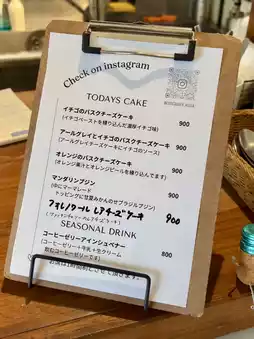 Check on instagram
TODAYS CAKE
イチゴのバスクチーズケーキ 900
(イチゴペーストを練り込んだ濃厚イチゴ味)
アールグレイとイチゴのバスクチーズケーキ 900
(アールグレイチーズケーキにイチゴのソース)
オレンジのバスクチーズケーキ 900
(オレンジ果汁とオレンジピールを練り込んでます)
マンダリンプリン
(中にマーマレード
トッピングに甘夏みかんのせブラジルプリン)
アールレノワール レアチーズケーキ 900
SEASONAL DRINK
コーヒーゼリーアインシュペナー 800
(コーヒーゼリー+牛乳+生クリーム
飲むコーヒーゼリーです)